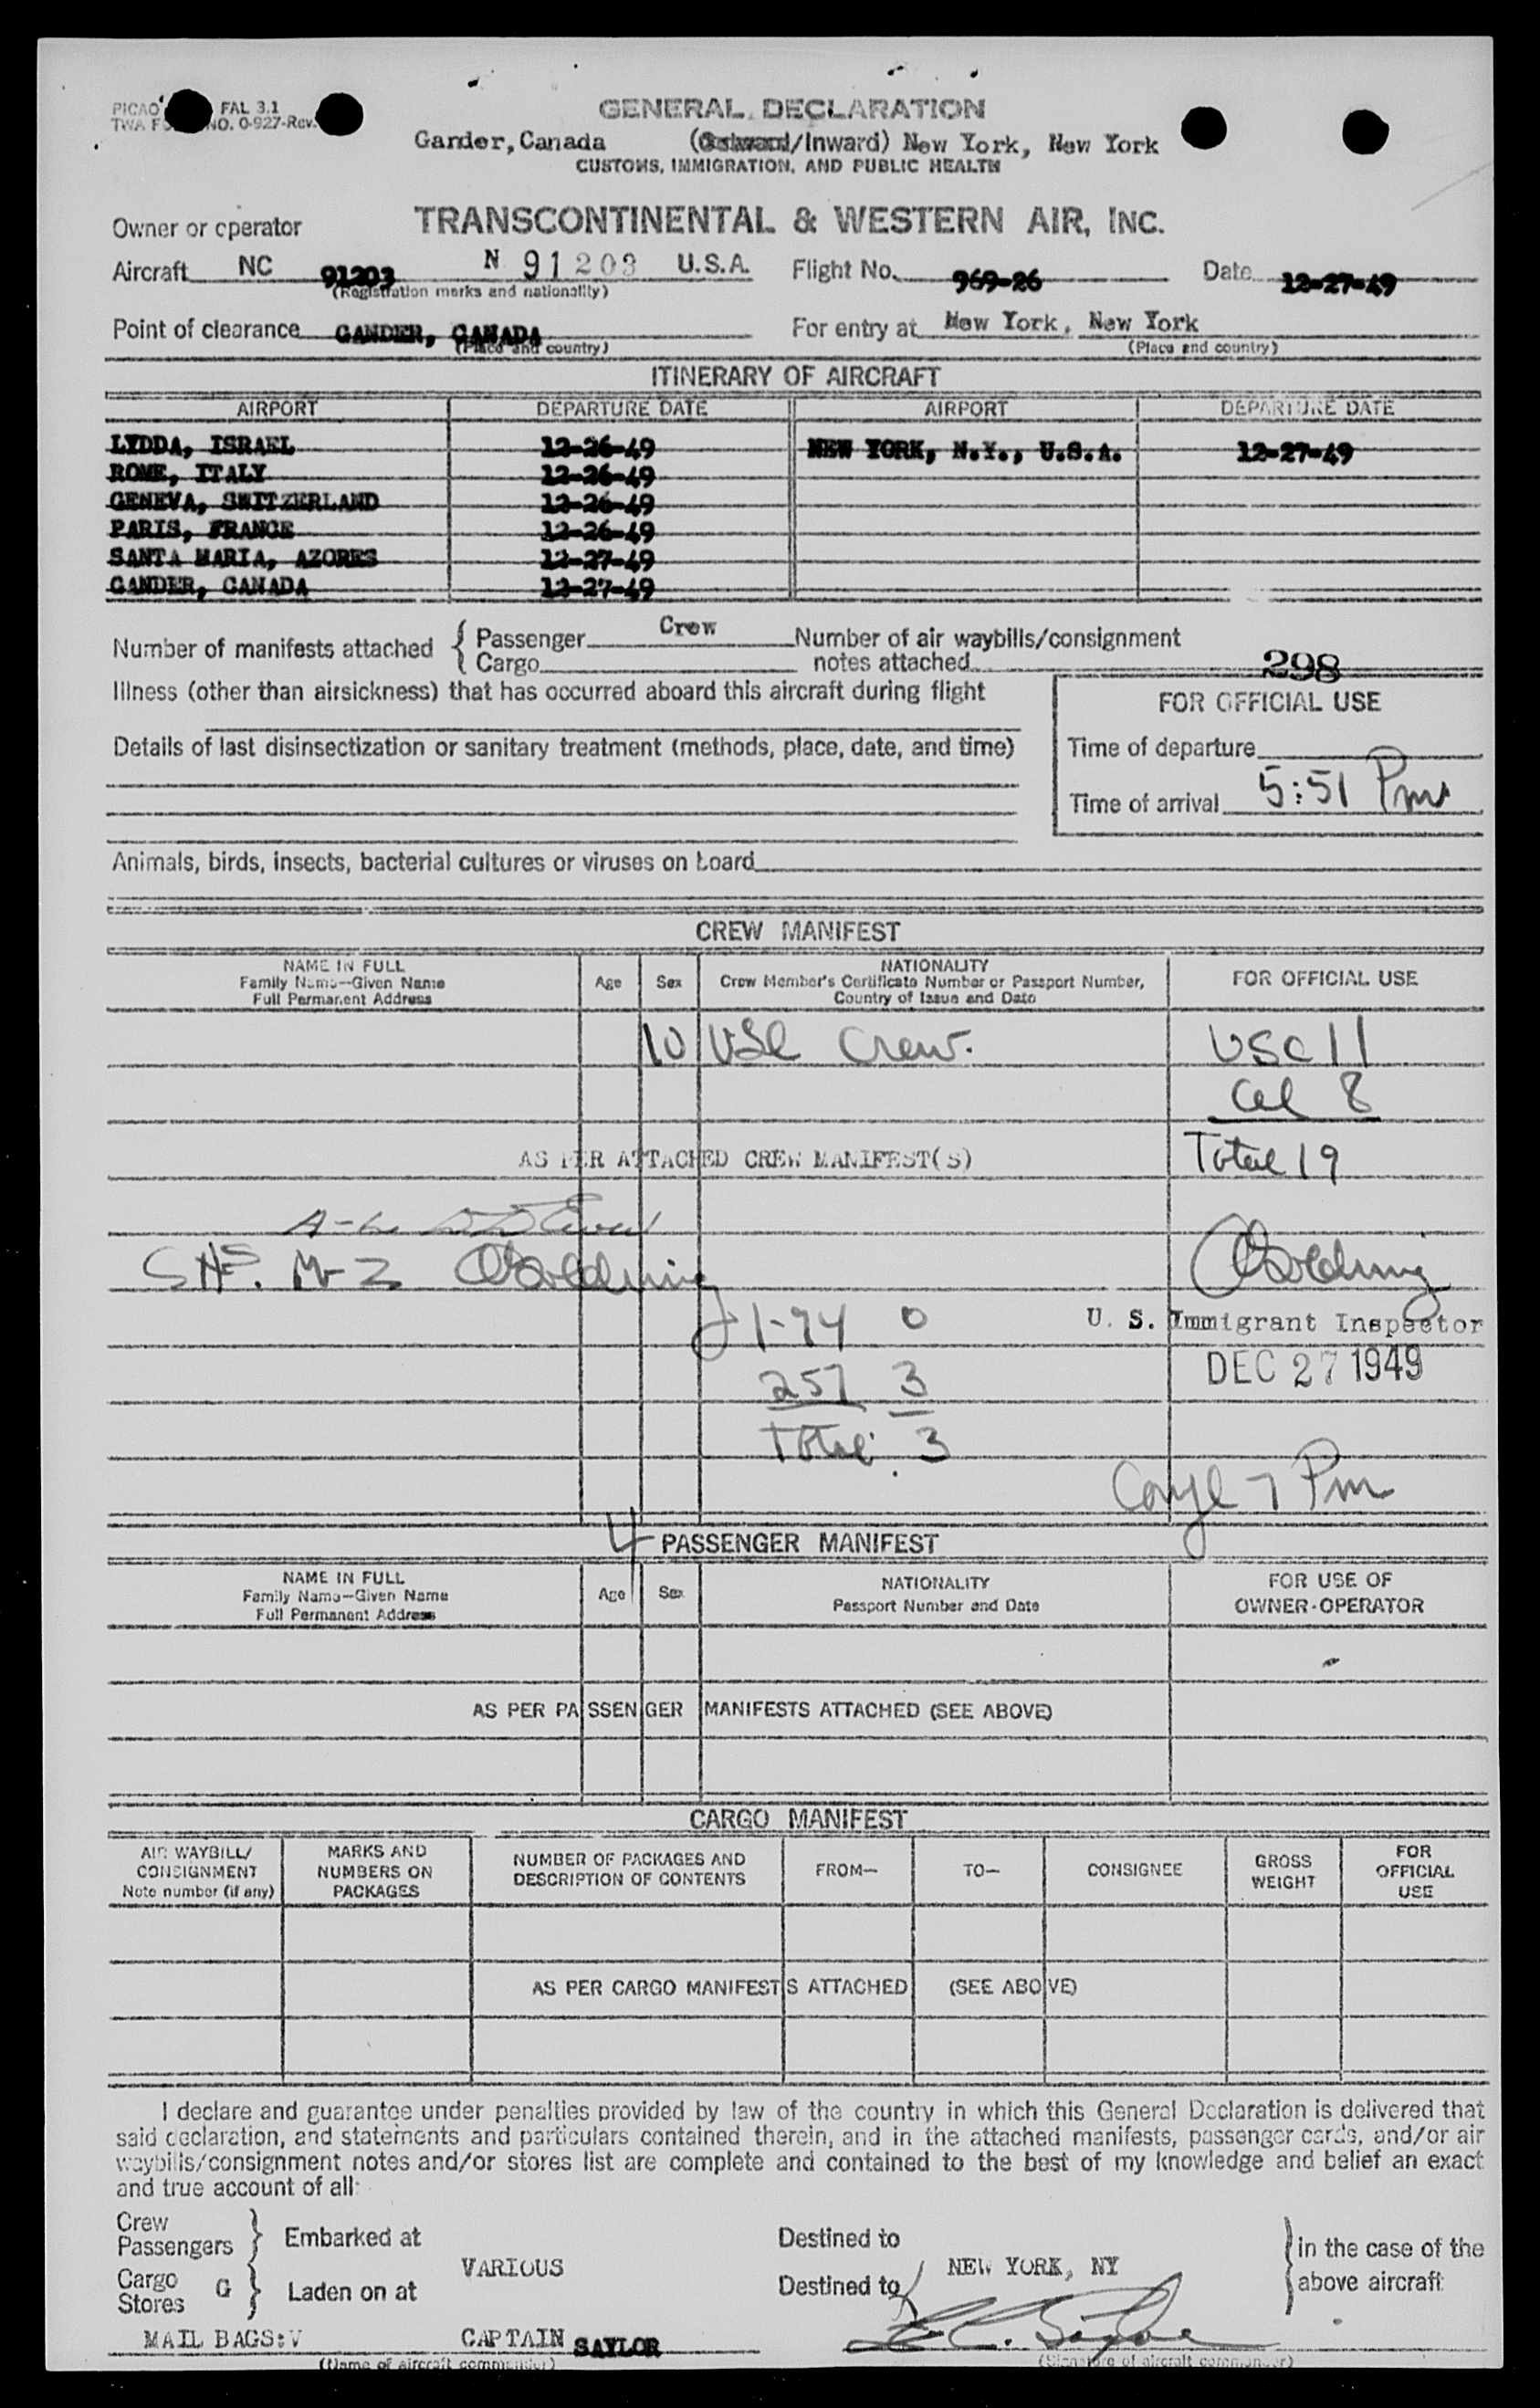 PICAO FAL 3.1
TWA F NO. 0-927-Rev.
GENERAL DECLARATION
Gander, Canada (Outward/Inward) New York, New York
CUSTOMS, IMMIGRATION, AND PUBLIC HEALTH
Owner or operator TRANSCONTINENTAL & WESTERN AIR, INC.
Aircraft NC 91203 N 91203 U.S.A. Flight No. 969-26 Date 12-27-49
(Registration marks and nationality)
Point of clearance GANDER, CANADA For entry at New York, New York
(Place and country) (Place and country)
ITINERARY OF AIRCRAFT
AIRPORT DEPARTURE DATE AIRPORT DEPARTURE DATE
LYDDA, ISRAEL 12-26-49 NEW YORK, N.Y., U.S.A. 12-27-49
ROME, ITALY 12-26-49
GENEVA, SWITZERLAND 12-26-49
PARIS, FRANCE 12-26-49
SANTA MARIA, AZORES 12-27-49
GANDER, CANADA 12-27-49
Number of manifests attached { Passenger Crew Number of air waybills/consignment
Cargo notes attached 298
Illness (other than airsickness) that has occurred aboard this aircraft during flight
FOR OFFICIAL USE
Details of last disinsectization or sanitary treatment (methods, place, date, and time)
Time of departure
Time of arrival 5:51 Pm
Animals, birds, insects, bacterial cultures or viruses on board
CREW MANIFEST
NAME IN FULL
Family Name—Given Name
Full Permanent Address
Age Sex
NATIONALITY
Crew Member's Certificate Number or Passport Number,
Country of Issue and Date
FOR OFFICIAL USE
10 USC Crew. USC 11
8
AS PER ATTACHED CREW MANIFEST(S) Total 19
A-L
M-Z
U. S. Immigrant Inspector
1-94 0
DEC 27 1949
257 3
Total 3
7 Pm
4 PASSENGER MANIFEST
NAME IN FULL
Family Name—Given Name
Full Permanent Address
Age Sex
NATIONALITY
Passport Number and Date
FOR USE OF
OWNER-OPERATOR
AS PER PASSENGER MANIFESTS ATTACHED (SEE ABOVE)
CARGO MANIFEST
AIR WAYBILL/
CONSIGNMENT
Note number (if any)
MARKS AND
NUMBERS ON
PACKAGES
NUMBER OF PACKAGES AND
DESCRIPTION OF CONTENTS
FROM—
TO—
CONSIGNEE
GROSS
WEIGHT
FOR
OFFICIAL
USE
AS PER CARGO MANIFESTS ATTACHED (SEE ABOVE)
I declare and guarantee under penalties provided by law of the country in which this General Declaration is delivered that
said declaration, and statements and particulars contained therein, and in the attached manifests, passenger cards, and/or air
waybills/consignment notes and/or stores list are complete and contained to the best of my knowledge and belief an exact
and true account of all:
Crew
Passengers } Embarked at Destined to } in the case of the
VARIOUS NEW YORK, NY
Cargo G
Stores } Laden on at Destined to above aircraft
MAIL BAGS:V CAPTAIN SAYLOR
(Name of aircraft commander) (Signature of aircraft commander)